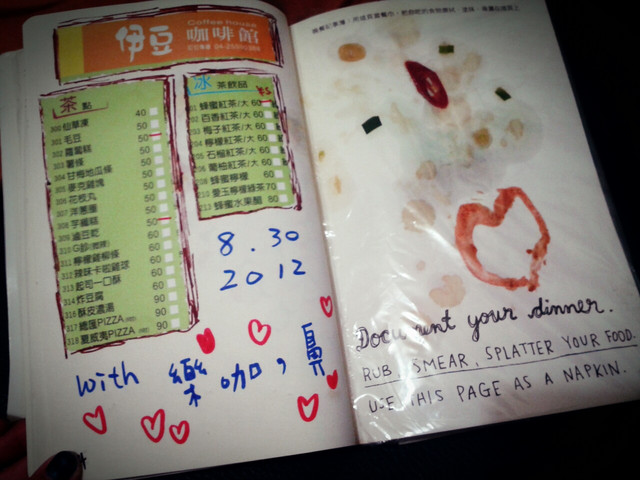 Coffee house
伊豆 咖啡館
茶 點
300 仙草凍 40
301 毛豆 50
302 蘿蔔糕 50
303 薯條 50
304 甘梅地瓜條 50
305 麥克雞塊 50
306 花枝丸 50
307 洋蔥圈 50
308 芋頭糕 50
309 滷豆乾 60
311 檸檬雞柳條 60
312 辣味卡啦雞球 60
313 起司一口酥 60
314 炸豆腐 90
316 酥皮濃湯 90
317 總匯PIZZA 90
318 夏威夷PIZZA 90
冰 茶飲品
蜂蜜紅茶/大 60
百香紅茶/大 60
梅子紅茶/大 60
檸檬紅茶/大 60
石榴紅茶/大 60
葡柚紅茶/大 60
蜂蜜檸檬 60
愛玉檸檬綠茶 70
蜂蜜水果醋 80
8.30
2012
with 樂咖,鼻
Document your dinner.
RUB, SMEAR, SPLATTER YOUR FOOD.
USE THIS PAGE AS A NAPKIN.